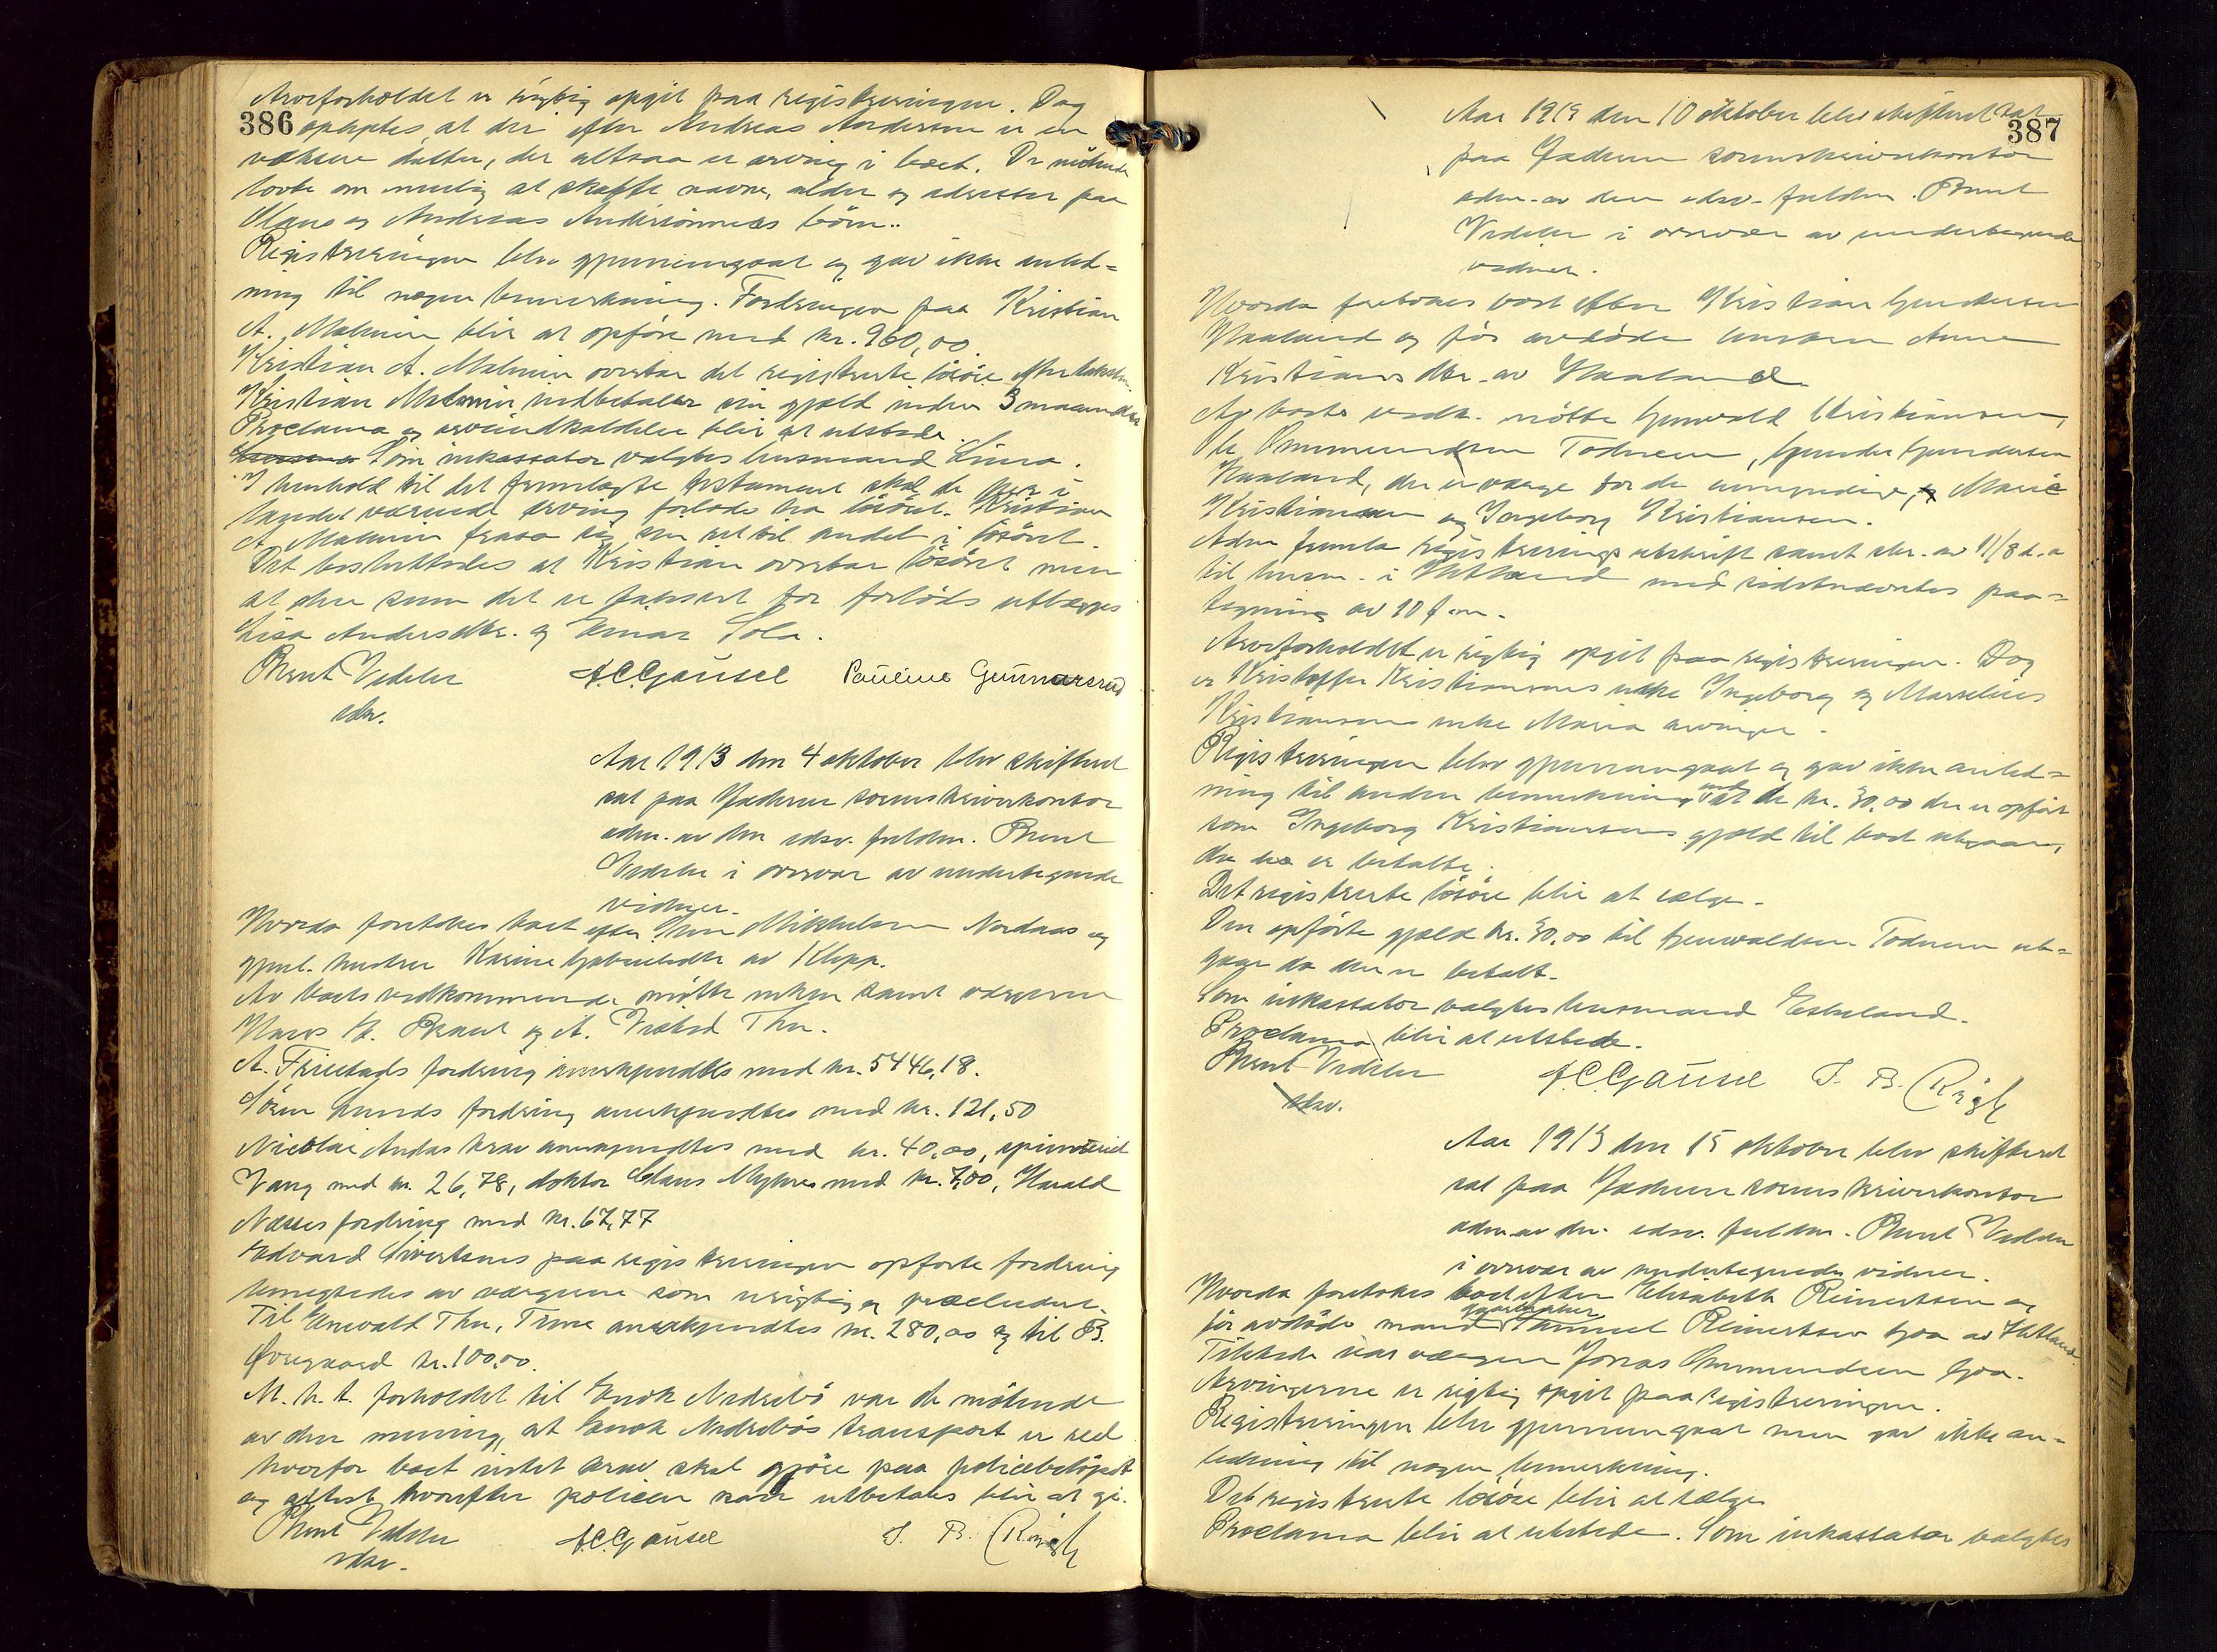 386
Arveforholdet er rigtig opgit paa registreringen. Dog
oplystes at der efter Andreas Andersen er en
voksen datter, der altsaa er arving i boet. De møtende
lovte om mulig at skaffe navne, alder og adresser paa
Olaus og Andreas Anderssønners börn.
Registreringen blev gjennemgaat og gav ikke anled-
ning til nogen bemerkning. Fordringen paa Kristian
A. Malmin blir at opföre med kr. 960,00
Kristian A. Malmin overtar det registrerte lösöre efter taksten.
Kristian Malmin indbetaler sin gjæld inden 3 maaneder
Proclama og arveindkaldelse blir at utstede.
Som inkassator valgtes lensmand Lima.
I henhold til det fremlagte testament skal de her i
landet værende arving forlods ha lösöret. Kristian
A. Malmin frasa sig sin ret til andel i lösöret.
Det besluttedes at Kristian overtar lösöret men
at den sum det er taksert for forlods utlægges
Lisa Andersdtr. og Einar Sola.
Bernt Vedeler A.C.Gausel Pauline Gunnarsrud
edsv.
Aar 1913 den 4 oktober blev skifteret
sat paa Jæderen sorenskriverkontor
adm. av den edsv. fuldm. Bernt
Vedeler i overvær av undertegnede
vidner.
Hvorda foretokes boet efter Mikkelsen Nordaas og
gjenl. hustru Karine Gabrielsdtr av Klepp.
Av boets vedkommende møtte enken samt værgerne
Hans A. Braut og A. Thu.
A. Friestads fordring anerkjendtes med kr. 5446,18.
Sören Lunds fordring anerkjendtes med kr. 121,50
Nicolai Andas krav anerkjendtes med kr. 40,00,
Vang med kr. 26,78, doktor Claus med kr. 7,00, Harald
Næsses fordring med kr. 67,77
Edvard Sivertsens paa registreringen opförte fordring
benegtedes av værgerne som urigtig og præcludert.
Til Enevald Thu, Time anerkjendtes kr. 280,00 og til B.
Øvregaard kr. 100,00.
M. h. t. forholdet til Enok Nedrebö var de mötende
av den mening, at Enok Nedrebös transport er reel
hvorfor boet intet krav skal gjöre paa policebelöpet
og attest hvorefter policen kan utbetales blir at gi.
Bernt Vedeler A.C.Gausel
edsv.
387
Aar 1913 den 10 oktober blev skifteret sat
paa Jæderen sorenskriverkontor
adm. av den edsv. fuldm. Bernt
Vedeler i overvær av undertegnede
vidner.
Hvorda foretokes boet efter Kristian Gundersen
Haaland og för avdöde hustru Anne
Kristiansdtr. av Haaland
Av boets vedk. mötte Gunvald Kristiansen,
Ole Ommundsen Todnem, Gunder Gundersen
Haaland, der er værge for de umyndige, Marie
Kristiansen og Ingeborg Kristiansen.
Adm fremla registreringsutskrift samt skr. av 11/8 d. a
til lensm. i Hetland med sidstnævntes paa-
tegning av 10 f. m.
Arveforholdet er rigtig opgit paa registreringen. Dog
er Kristoffer Kristiansens enke Ingeborg og Marselius
Kristiansens enke Maria arvinger.
Registreringen blev gjennemgaat og gav ikke anled-
ning til anden bemerkning end at de kr. 30,00 der er opfört
som Ingeborg Kristiansens gjæld til boet utgaar,
da de er betalte.
Det registrerte lösöre blir at sælge.
Den opförte gjæld kr. 30,00 til Todnem ut-
gaar da den er betalt.
Som inkassator valgtes lensmand Eskeland.
Proclama blir at utstede.
Bernt Vedeler A.C.Gausel
edsv.
Aar 1913 den 15 oktober blev skifteret
sat paa Jæderen sorenskriverkontor
adm. av den edsv. fuldm. Bernt Vedeler
i overvær av undertegnede vidner.
Hvorda foretokes boet efter Elisabeth Reinertsen og
för avdöde mand Reinertsen Goa av Hetland.
Tilstede var værgen Jonas Ommundsen Goa.
Arvingerne er rigtig opgit paa registreringen.
Registreringen blev gjennemgaat men gav ikke an-
ledning til nogen bemerkning.
Det registrerte lösöre blir at sælge
Proclama blir at utstede. Som inkassator valgtes